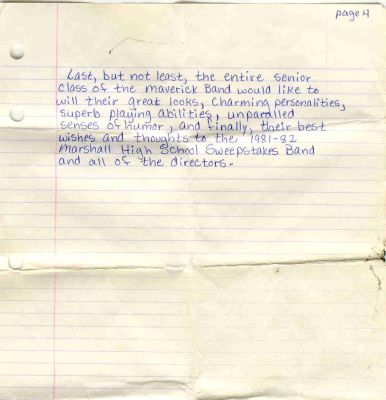 page 4
Last, but not least, the entire senior
class of the maverick Band would like to
will their great looks, charming personalities,
superb playing abilities, unparalled
senses of humor, and finally, their best
wishes and thoughts to the 1981-82
Marshall High School Sweepstakes Band
and all of the directors.